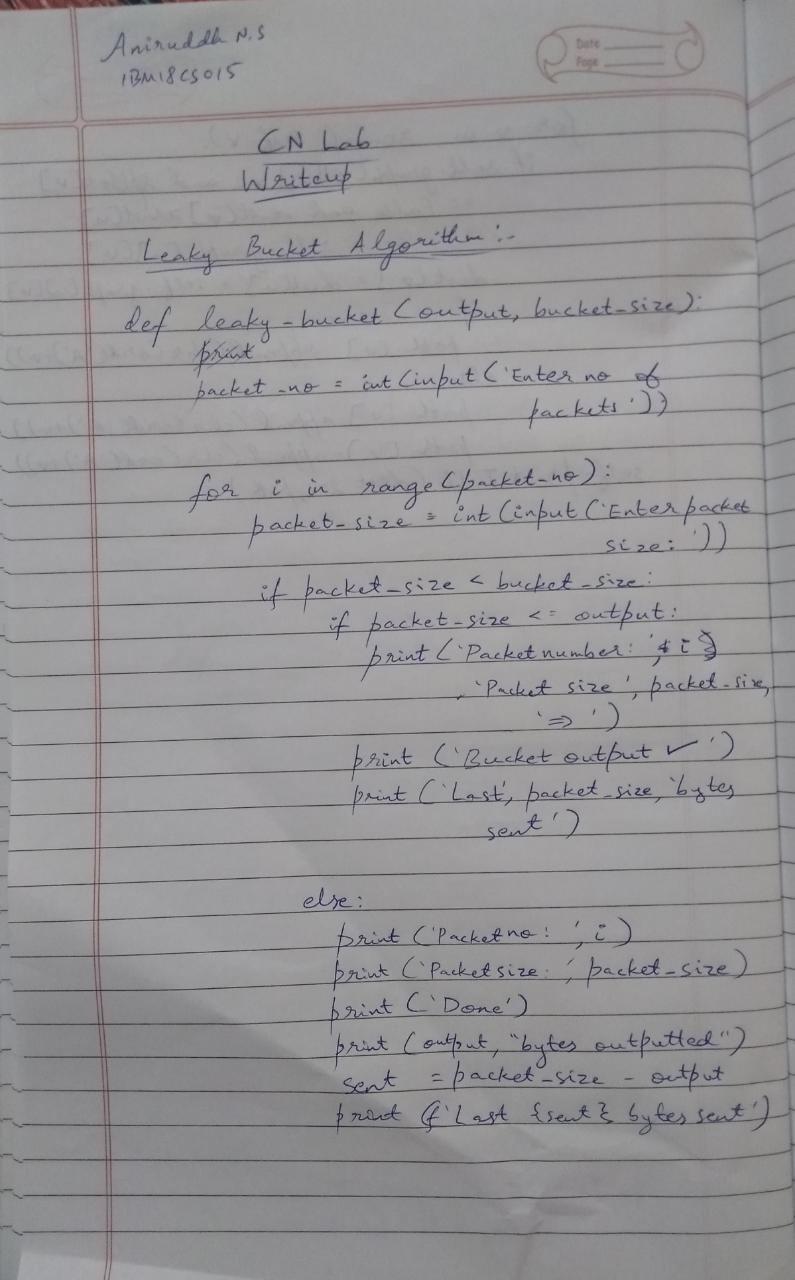 Aniruddh N.S
1BM18CS015
Date
Page
CN Lab
Writeup
Leaky Bucket Algorithm :-
def leaky-bucket (output, bucket-size):
print
packet-no = int (input ('Enter no of
packets'))
for i in range (packet-no):
packet-size = int (input ('Enter packet
size: '))
if packet-size < bucket-size:
if packet-size <= output:
print ('Packet number: ', i
, 'Packet size', packet-size,
'=> ')
print ('Bucket output ✓ ')
print ('Last', packet-size, 'bytes
sent')
else:
print ('Packet no: ', i)
print ('Packet size: ', packet-size)
print ('Done')
print (output, "bytes outputted")
sent = packet-size - output
print (f'Last {sent} bytes sent')